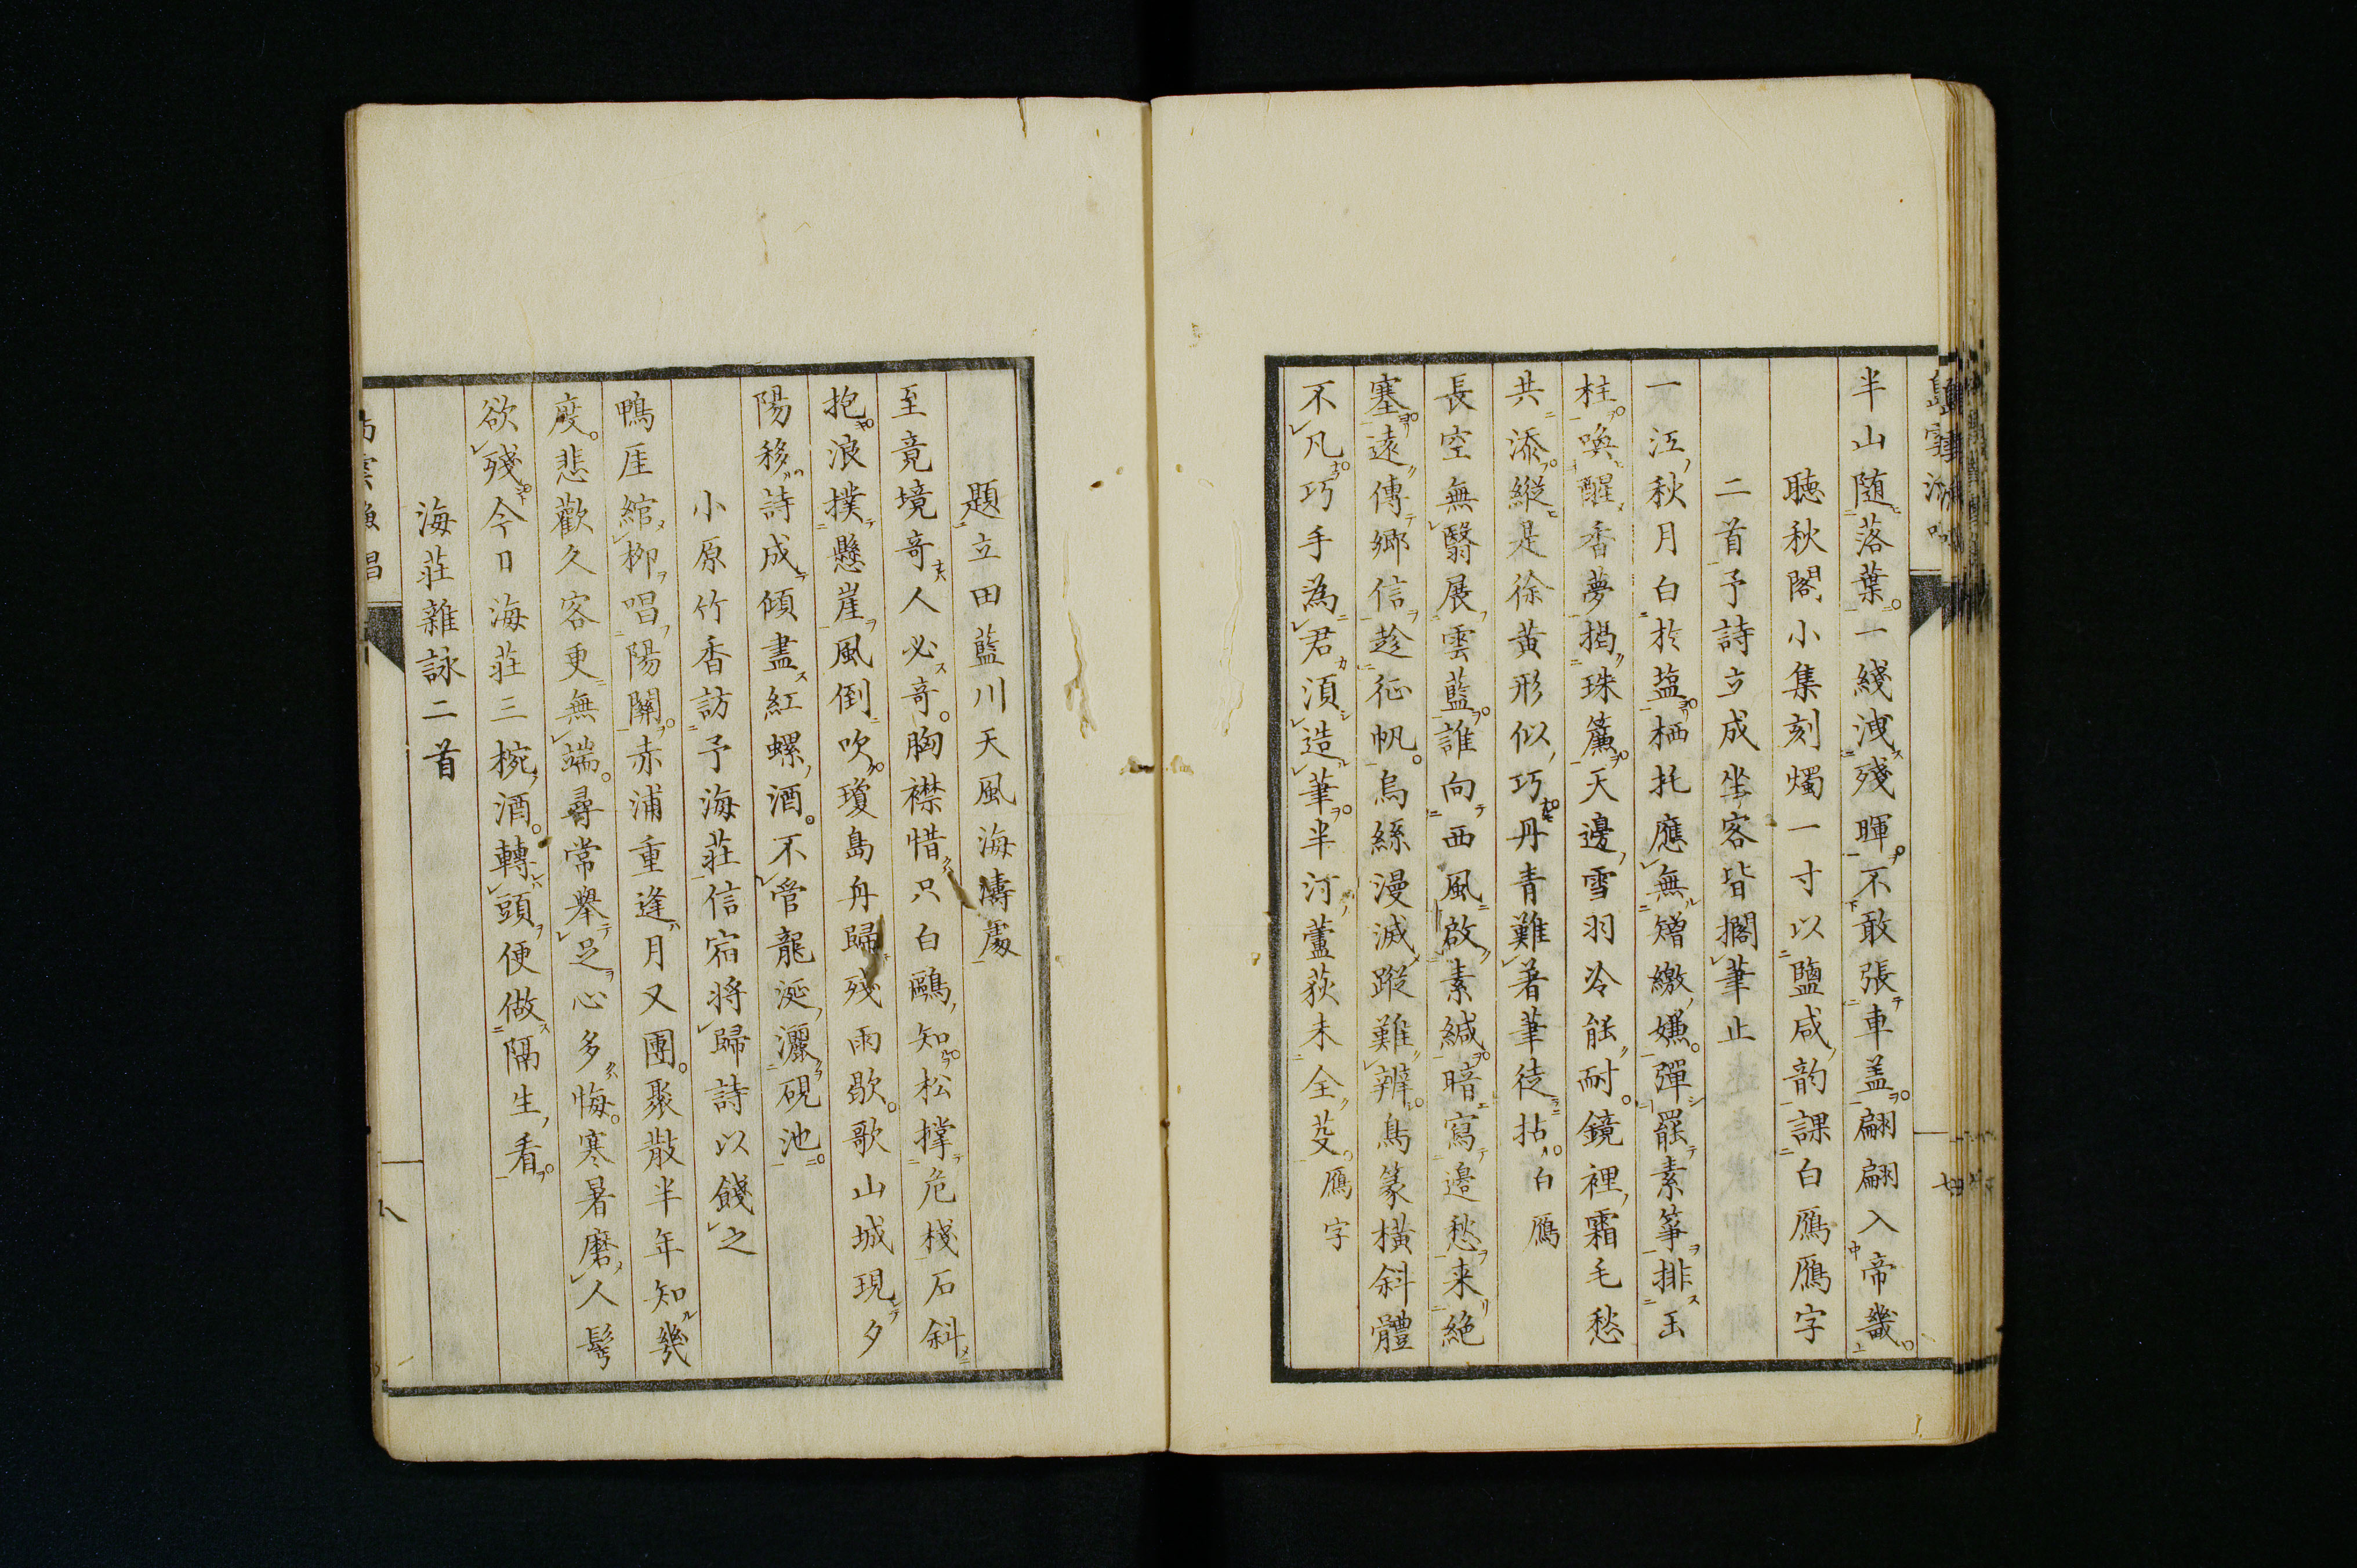 半山随落葉一綫洩殘暉不敢張車盖翩翩入帝畿
聴秋閣小集刻燭一寸以鹽咸韵課白鴈鴈字
二首予詩立成坐客皆擱筆止
一江秋月白於塩栖托應無矰繳嫌彈罷素筝排玉
柱喚醒香夢揭珠簾天邊雪羽冷能耐鏡裡霜毛愁
共添縦是徐黄形似巧丹青難着筆徒拈 白鴈
長空無翳展雲藍誰向西風啟素緘暗寫邉愁来絶
塞遠傳郷信趁征帆烏絲漫滅蹤難辨鳥篆横斜體
不凡巧手為君湏造筆半汀蘆荻未全芟 鴈字
題立田藍川天風海濤處
至竟境竒人必竒胸襟惜只白鷗知松撑危棧石斜
抱浪撲懸崖風倒吹瓊島舟歸残雨歇歌山城現夕
陽移詩成傾盡紅螺酒不管龍涎灑硯池
小原竹香訪予海莊信宿将歸詩以餞之
鴨厓綰栁唱陽關赤浦重逢月又團聚散半年知幾
度悲歡久客更無端尋常舉足心多悔寒暑磨人鬂
欲殘今日海莊三椀酒轉頭便做隔生看
海莊雑詠二首
八